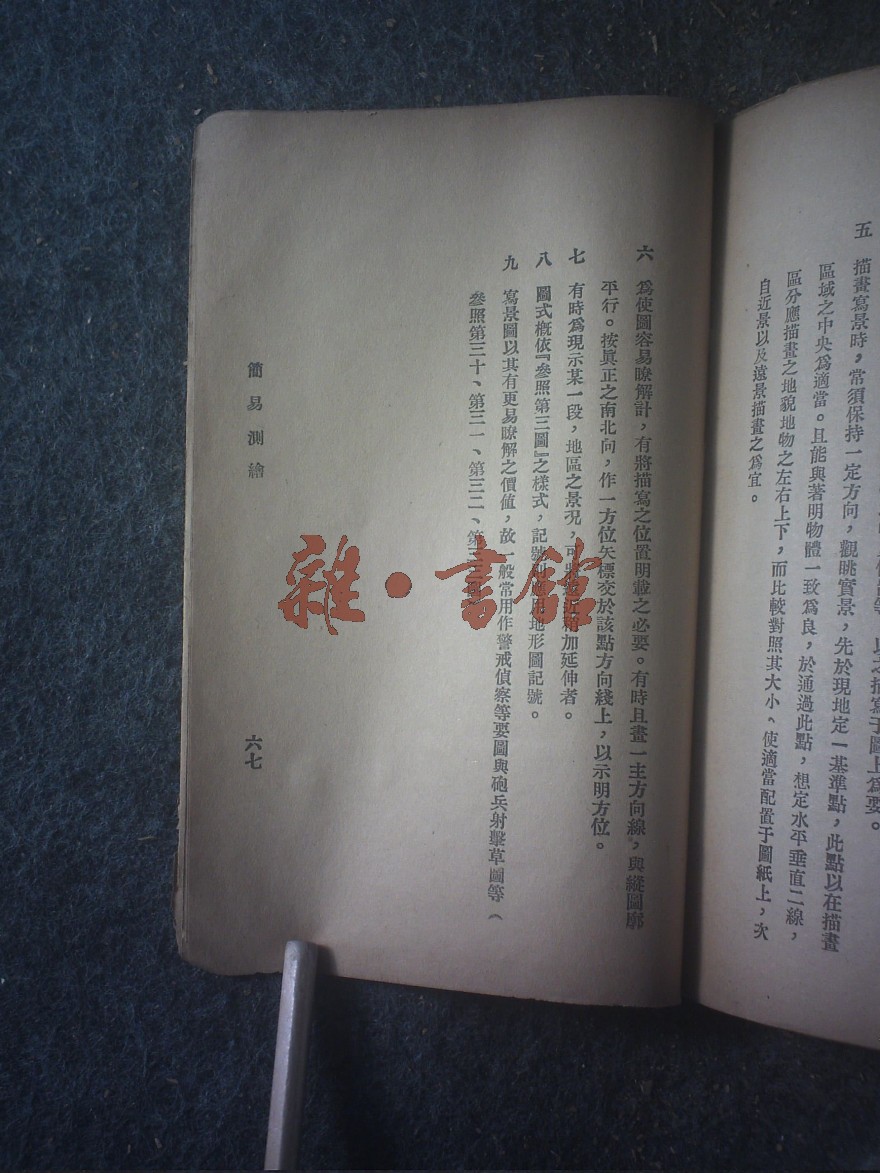 以之描寫于圖上爲要。
五 描畫寫景時，常須保持一定方向，觀眺實景，先於現地定一基準點，此點以在描畫
區域之中央爲適當。且能與著明物體一致爲良，於通過此點，想定水平垂直二線，
區分應描畫之地貌地物之左右上下，而比較對照其大小、使適當配置于圖紙上，次
自近景以及遠景描畫之爲宜。
六 爲使圖容易瞭解計，有將描寫之位置明載之必要。有時且畫一主方向線，與縱圖廓
平行。按眞正之南北向，作一方位矢標交於該點方向綫上，以示明方位。
七 有時爲現示某一段，地區之景况，可將加延伸者。
八 圖式槪依『參照第三圖』之樣式，記號則應用地形圖記號。
九 寫景圖以其有更易瞭解之價値，故一般常用作警戒偵察等要圖與砲兵射擊草圖等（
參照第三十、第三一、第三二、第
簡易測繪
六七
雜·書館